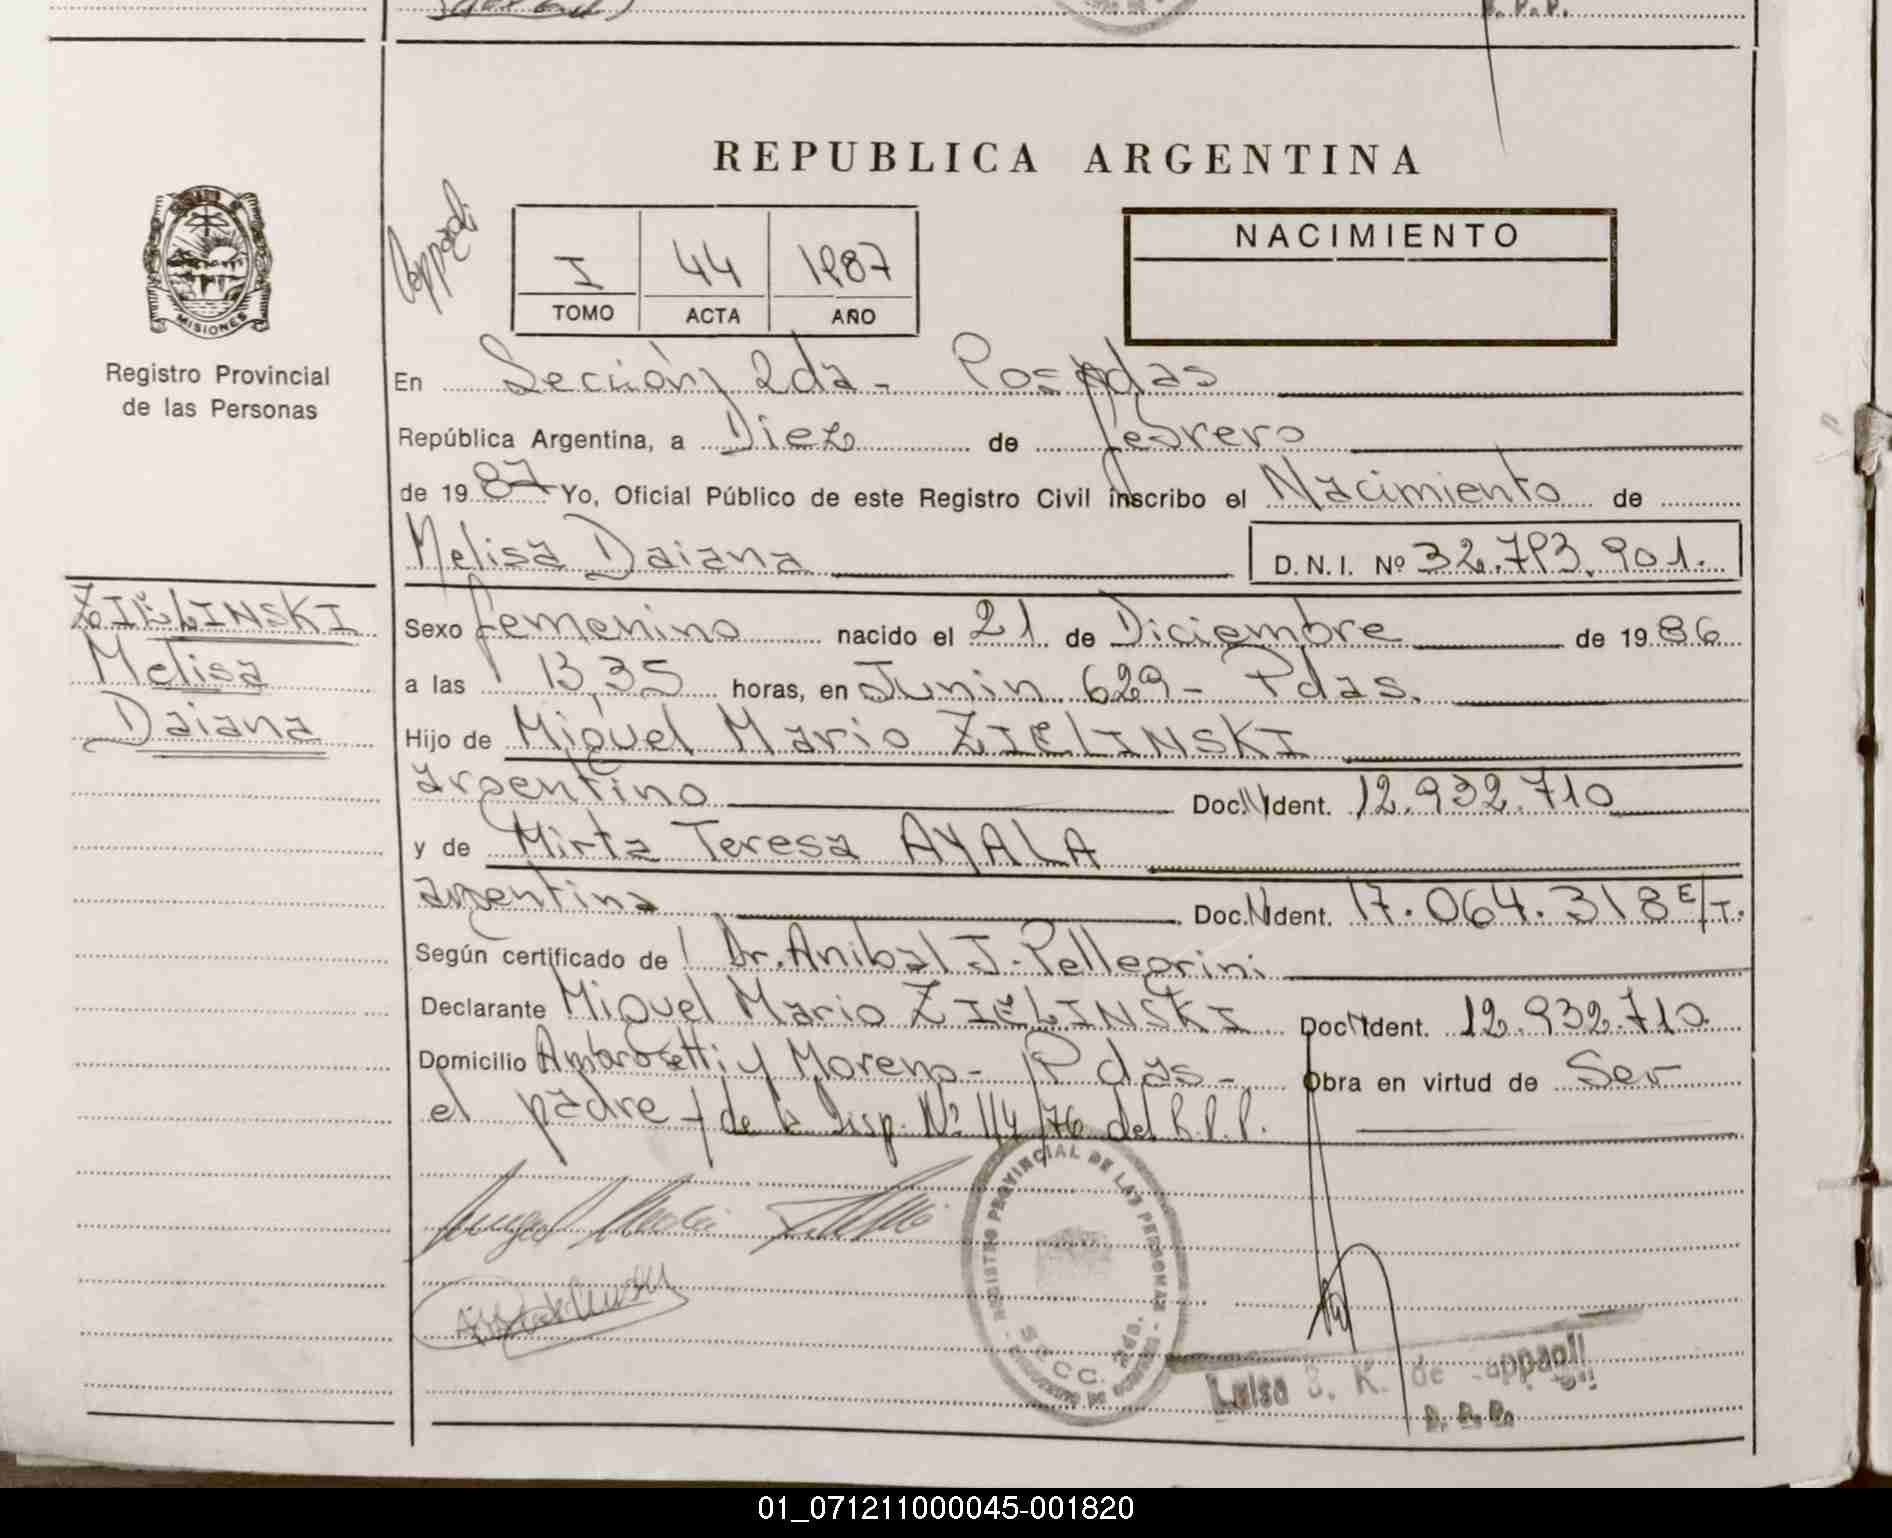 R. P. P.
REPUBLICA ARGENTINA
MISIONES
Registro Provincial
de las Personas
I 44 1987
TOMO ACTA AÑO
NACIMIENTO
En Sección 2da - Posadas
República Argentina, a Diez de febrero
de 1987 Yo, Oficial Público de este Registro Civil inscribo el Nacimiento de
Melisa Daiana D.N.I. Nº 32.793.901.
ZIELINSKI
Melisa
Daiana
Sexo femenino nacido el 21 de Diciembre de 1986
a las 13,35 horas, en Junin 629 - Pdas.
Hijo de Miguel Mario ZIELINSKI
argentino Doc. N Ident. 12.932.710
y de Mirta Teresa AYALA
argentina Doc. N Ident. 17.064.318 E/T.
Según certificado de Dr. Anibal J. Pellegrini
Declarante Miguel Mario ZIELINSKI Doc N Ident. 12.932.710
Domicilio Ambrosetti y Moreno - Pdas - Obra en virtud de Ser
el padre - de la Disp. Nº 114/76 del R.P.P.
REGISTRO PROVINCIAL DE LAS PERSONAS
SECC. 2da.
Luisa B. K. de Cappaqli
R. P. P.
01_071211000045-001820